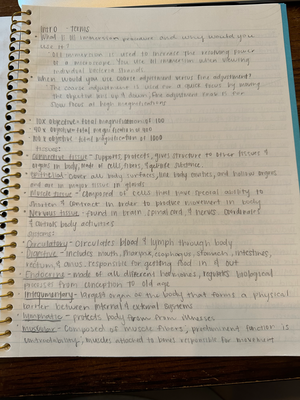 Intro - Terms
What is oil immersion procedure and why would you
use it?
Oil immersion is used to increase the resolving power
of a microscope. You use oil immersion when viewing
individual bacteria strands.
When would you use coarse adjustment versus fine adjustment?
The coarse adjustment is used on a quick focus by moving
the objective lens up & down, fine adjustment knob is for
slow focus at high magnifications
10x objective total magnification of 100
40x objective total magnification of 400
100x objective total magnification of 1000
tissues:
Connective tissue - supports, protects, gives structure to other tissues &
organs in body, made of cells, fibers, & substance.
Epithelial - cover all body surfaces, line body cavities, and hollow organs
and are in major tissue in glands
Muscle tissue - composed of cells that have special ability to
shorten & contract in order to produce movement in body
Nervous tissue - found in brain, spinal cord, & nerves. Coordinates
& controls body activities
Systems:
Circulatory - circulates blood & lymph through body
Digestive - includes mouth, pharynx, esophagus, stomach, intestines,
rectum, & anus. responsible for getting food in & out
Endocrine - made of all different hormones, regulates biological
processes from conception to old age
Integumentary - largest organ of the body that forms a physical
barrier between internal & external systems
lymphatic - protects body from illnesses
muscular - composed of muscle fibers, predominant function is
contractability, muscles attached to bones responsible for movement